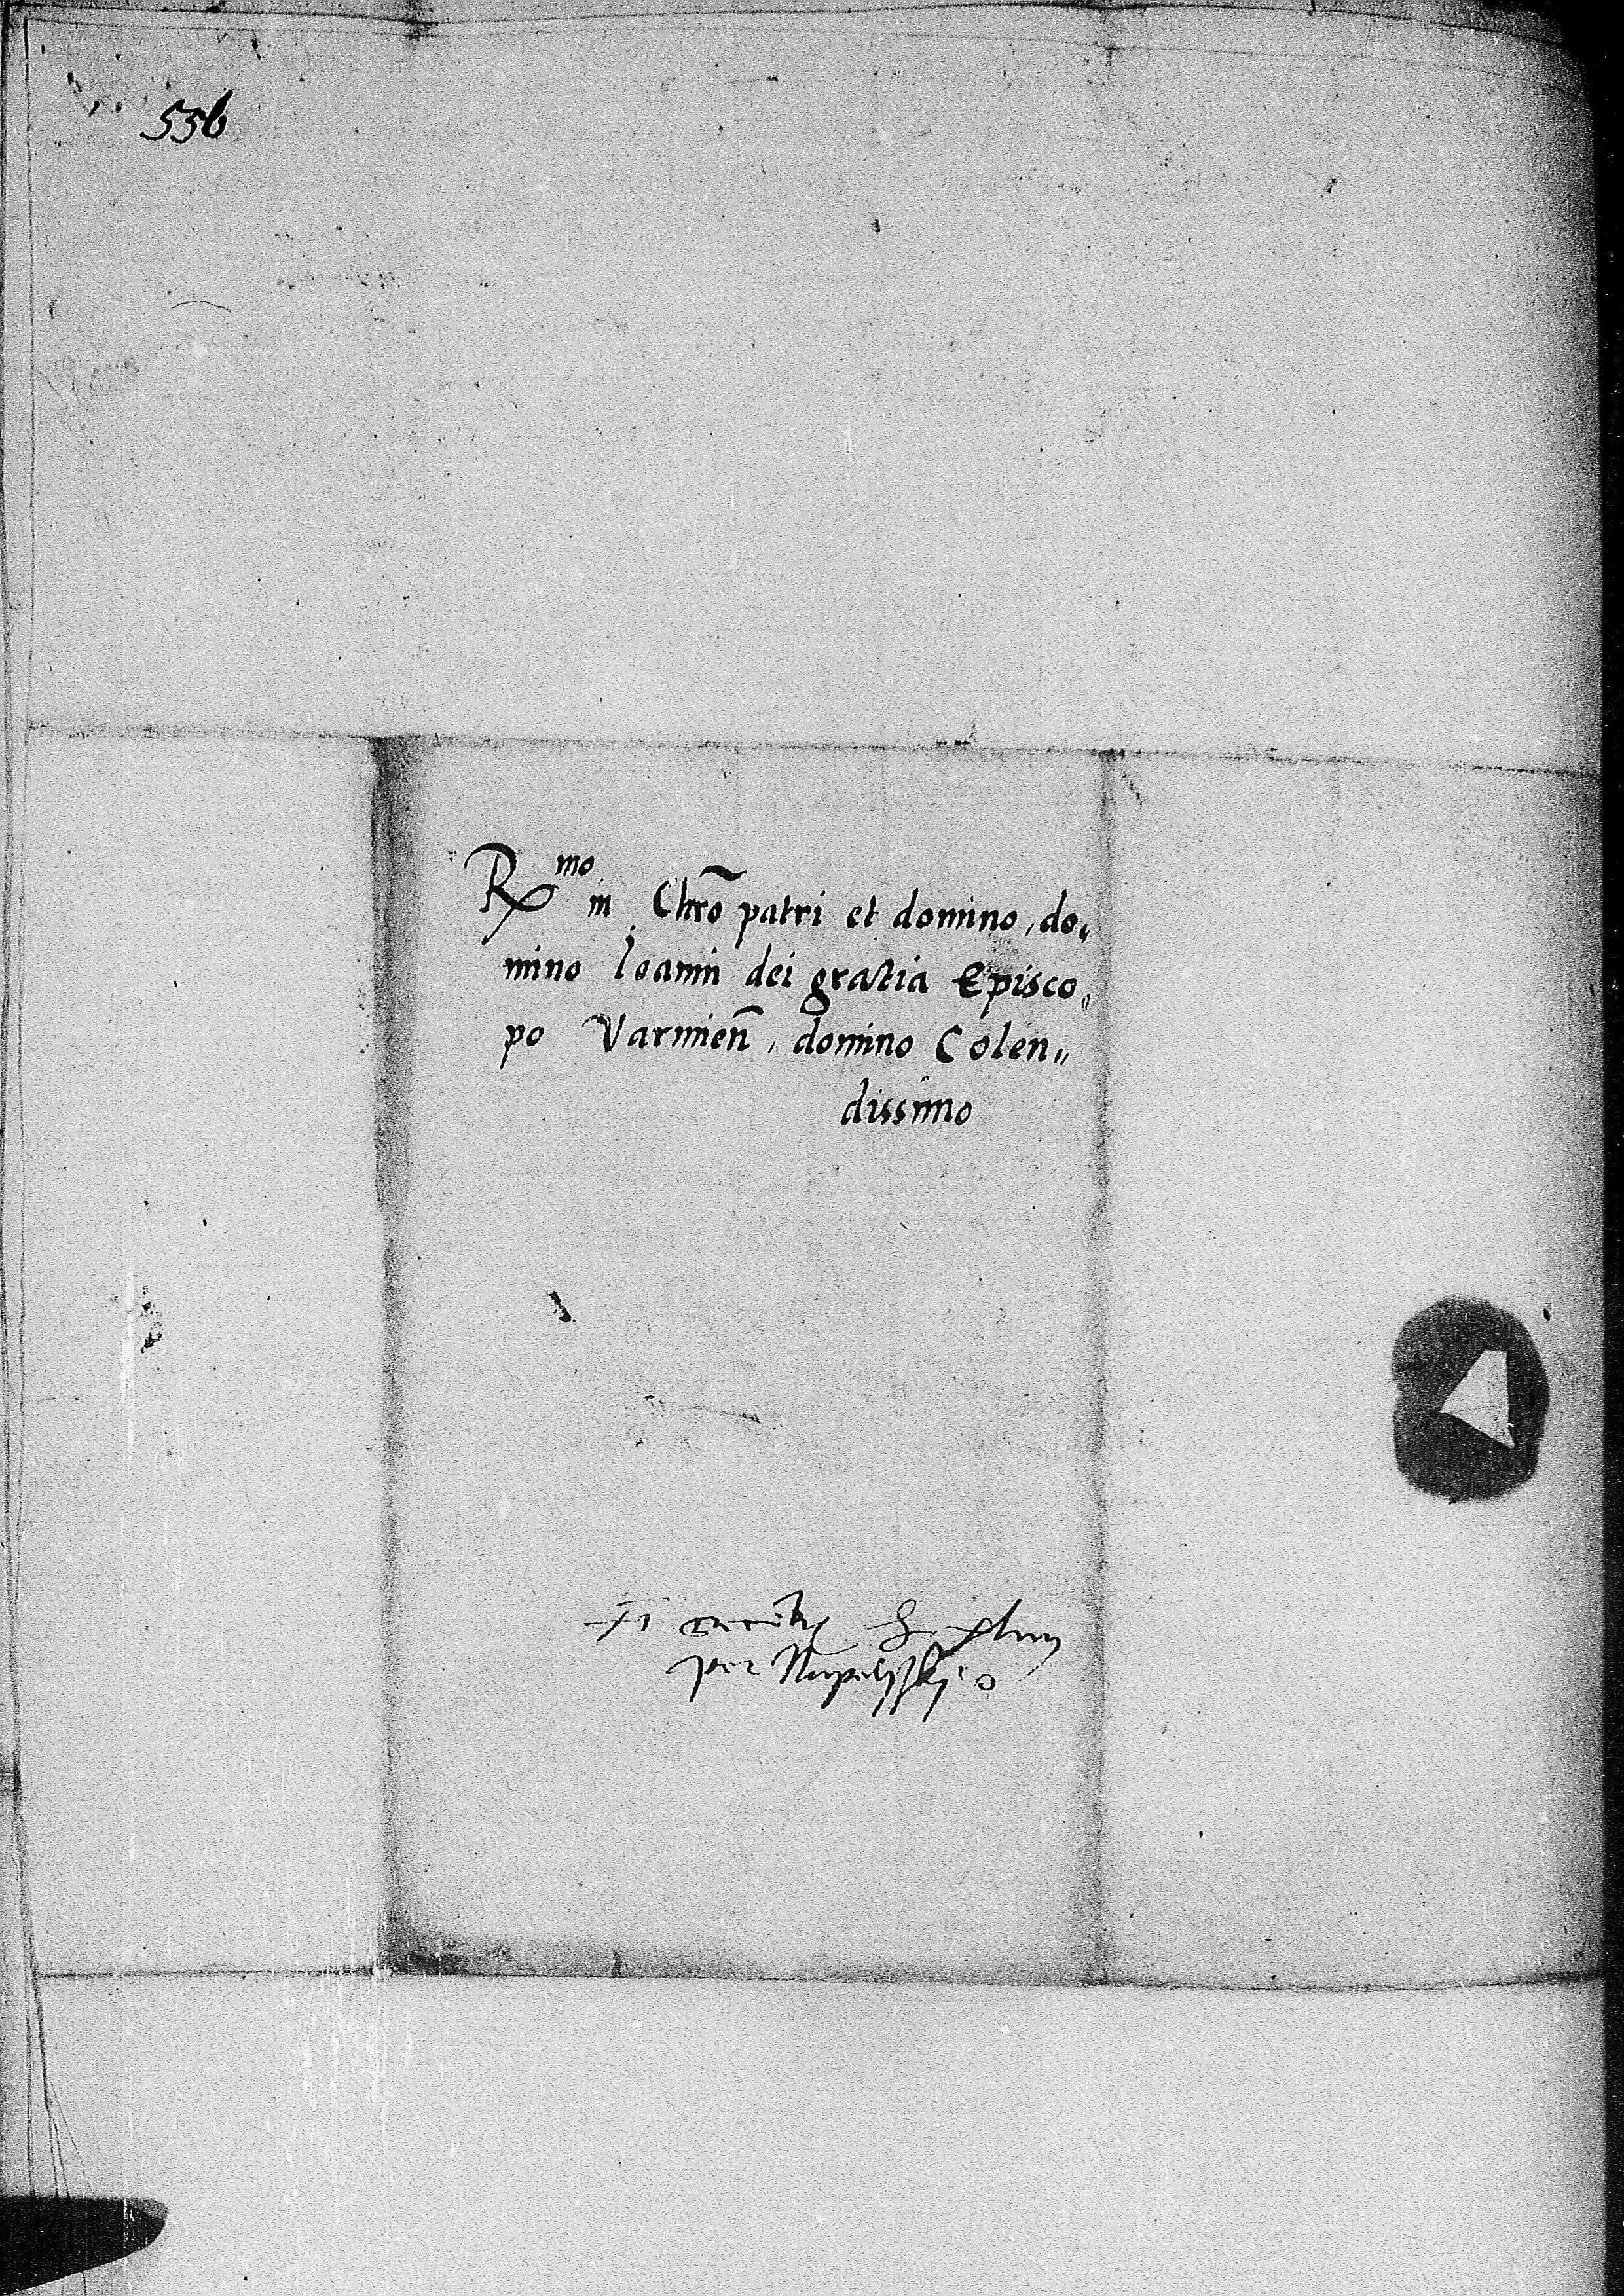 556
Rmo in Chro patri et domino, do„
mino Ioanni dei gratia Episco„
po Varmien̄, domino Colen„
dissimo
per